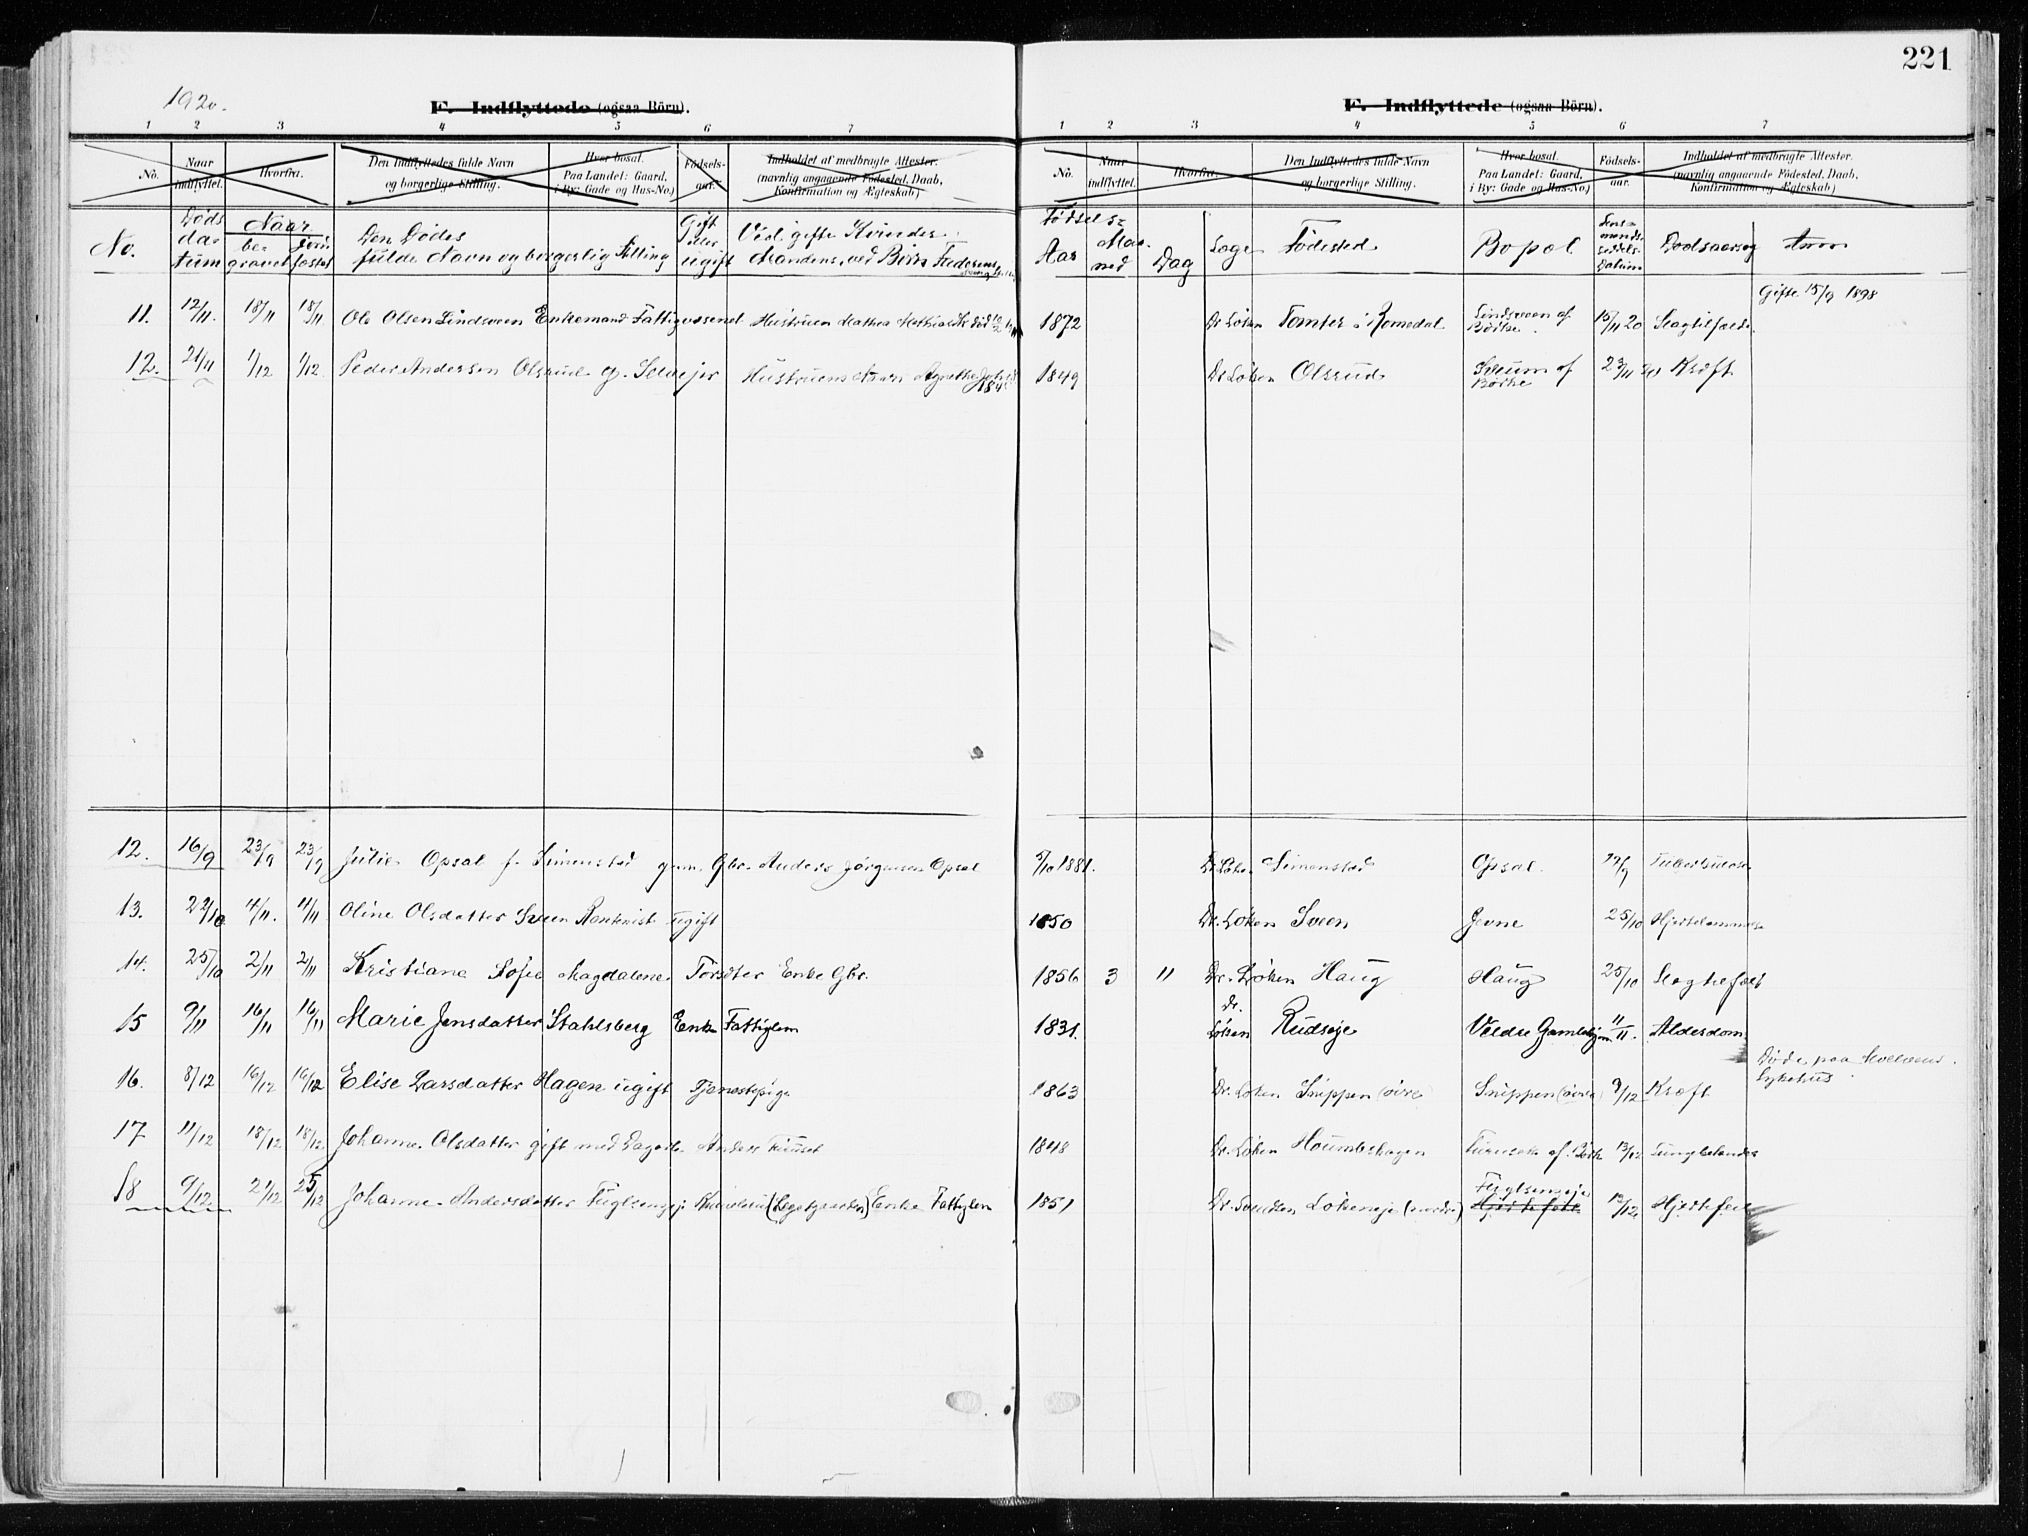 221
1920.
F. Indflyttede (ogsaa Börn).
1 2 3 4 5 6 7
No. Naar indflyttet. Hvorfra. Den Indflyttedes fulde Navn og borgerlige Stilling. Hvor bosat. Paa Landet: Gaard, i By: Gade og Hus-No.) Födsels-aar. Indholdet af medbragte Attester. (navnlig angaaende Födested, Daab, Konfirmation og Ægteskab)
No. Døds da- tum Naar be- gravet jord- fæstet Den Dødes fulde Navn og borgerlig Stilling Gift eller ugift Ved gifte Kvinder Mandens, ved Børn Faderens
11. 12/11. 18/11 18/11 Ole Olsen Lindsveen Enkemand Fattigvæsenet Hustruen Mathea
12. 21/11 1/12 1/12 Peder Andersen Olsrud Hustruens Navn Agnethe
12. 16/9 23/9 23/9 Julie Opsal f. Simenstad gm. Gbr. Anders Jørgensen Opsal
13. 22/10 4/11. 4/11 Oline Olsdatter Sveen ugift
14. 25/10 2/11 2/11 Kristiane Sofie Magdalene Torsdter Enke Gbr.
15 9/11 16/11 16/11 Marie Jensdatter Stahlsberg Enke Fattiglem
16. 8/12 16/12 16/12 Elise Larsdatter Hagen ugift Tjenestepige
17 11/12 18/12 18/12 Johanne Olsdatter gift med Anders
18 9/12 21/12 25/12 Johanne Andersdatter Fuglsengeje (Legdgaarden) Enke Fattiglem
F. Indflyttede (ogsaa Börn).
1 2 3 4 5 6 7
No. Naar indflyttet. Hvorfra. Den Indflyttedes fulde Navn og borgerlige Stilling. Hvor bosat. Paa Landet: Gaard, i By: Gade og Hus-No.) Födsels-aar. Indholdet af medbragte Attester. (navnlig angaaende Födested, Daab, Konfirmation og Ægteskab)
Fødsels-
Aar Maa- ned Dag Læge Fødested Bopæl Dødsaarsag Anm
Gifte 15/9 1898
1872 Dr Løken Tomter i Romedal Lindsveen af Børke 15/11 20 Slagtilfælde
1849 Dr Løken Olsrud Sveum af Børke 23/11 20 Kræft
5/10 1881. Dr Løken Simenstad Opsal. 19/9 Tuberkulose
1850 Dr. Løken Sveen Jevne 25/10 Hjertelammelse
1856 3 11 Dr. Løken Haug Haug 25/10 Slagtilfæld
1831. Dr. Løken Rudseje Veldre Gamlehjem 11/11. Alderdom
Døde paa
Sykehus.
1863 Dr. Løken Snippen (øvre) Snippen (øvre) 9/12 Kræft
1848 Dr. Løken 13/12 Lungebetændelse
Fuglsengeje
1851 Dr. Løkeneje (nordre) 12/12 Hjertefeil